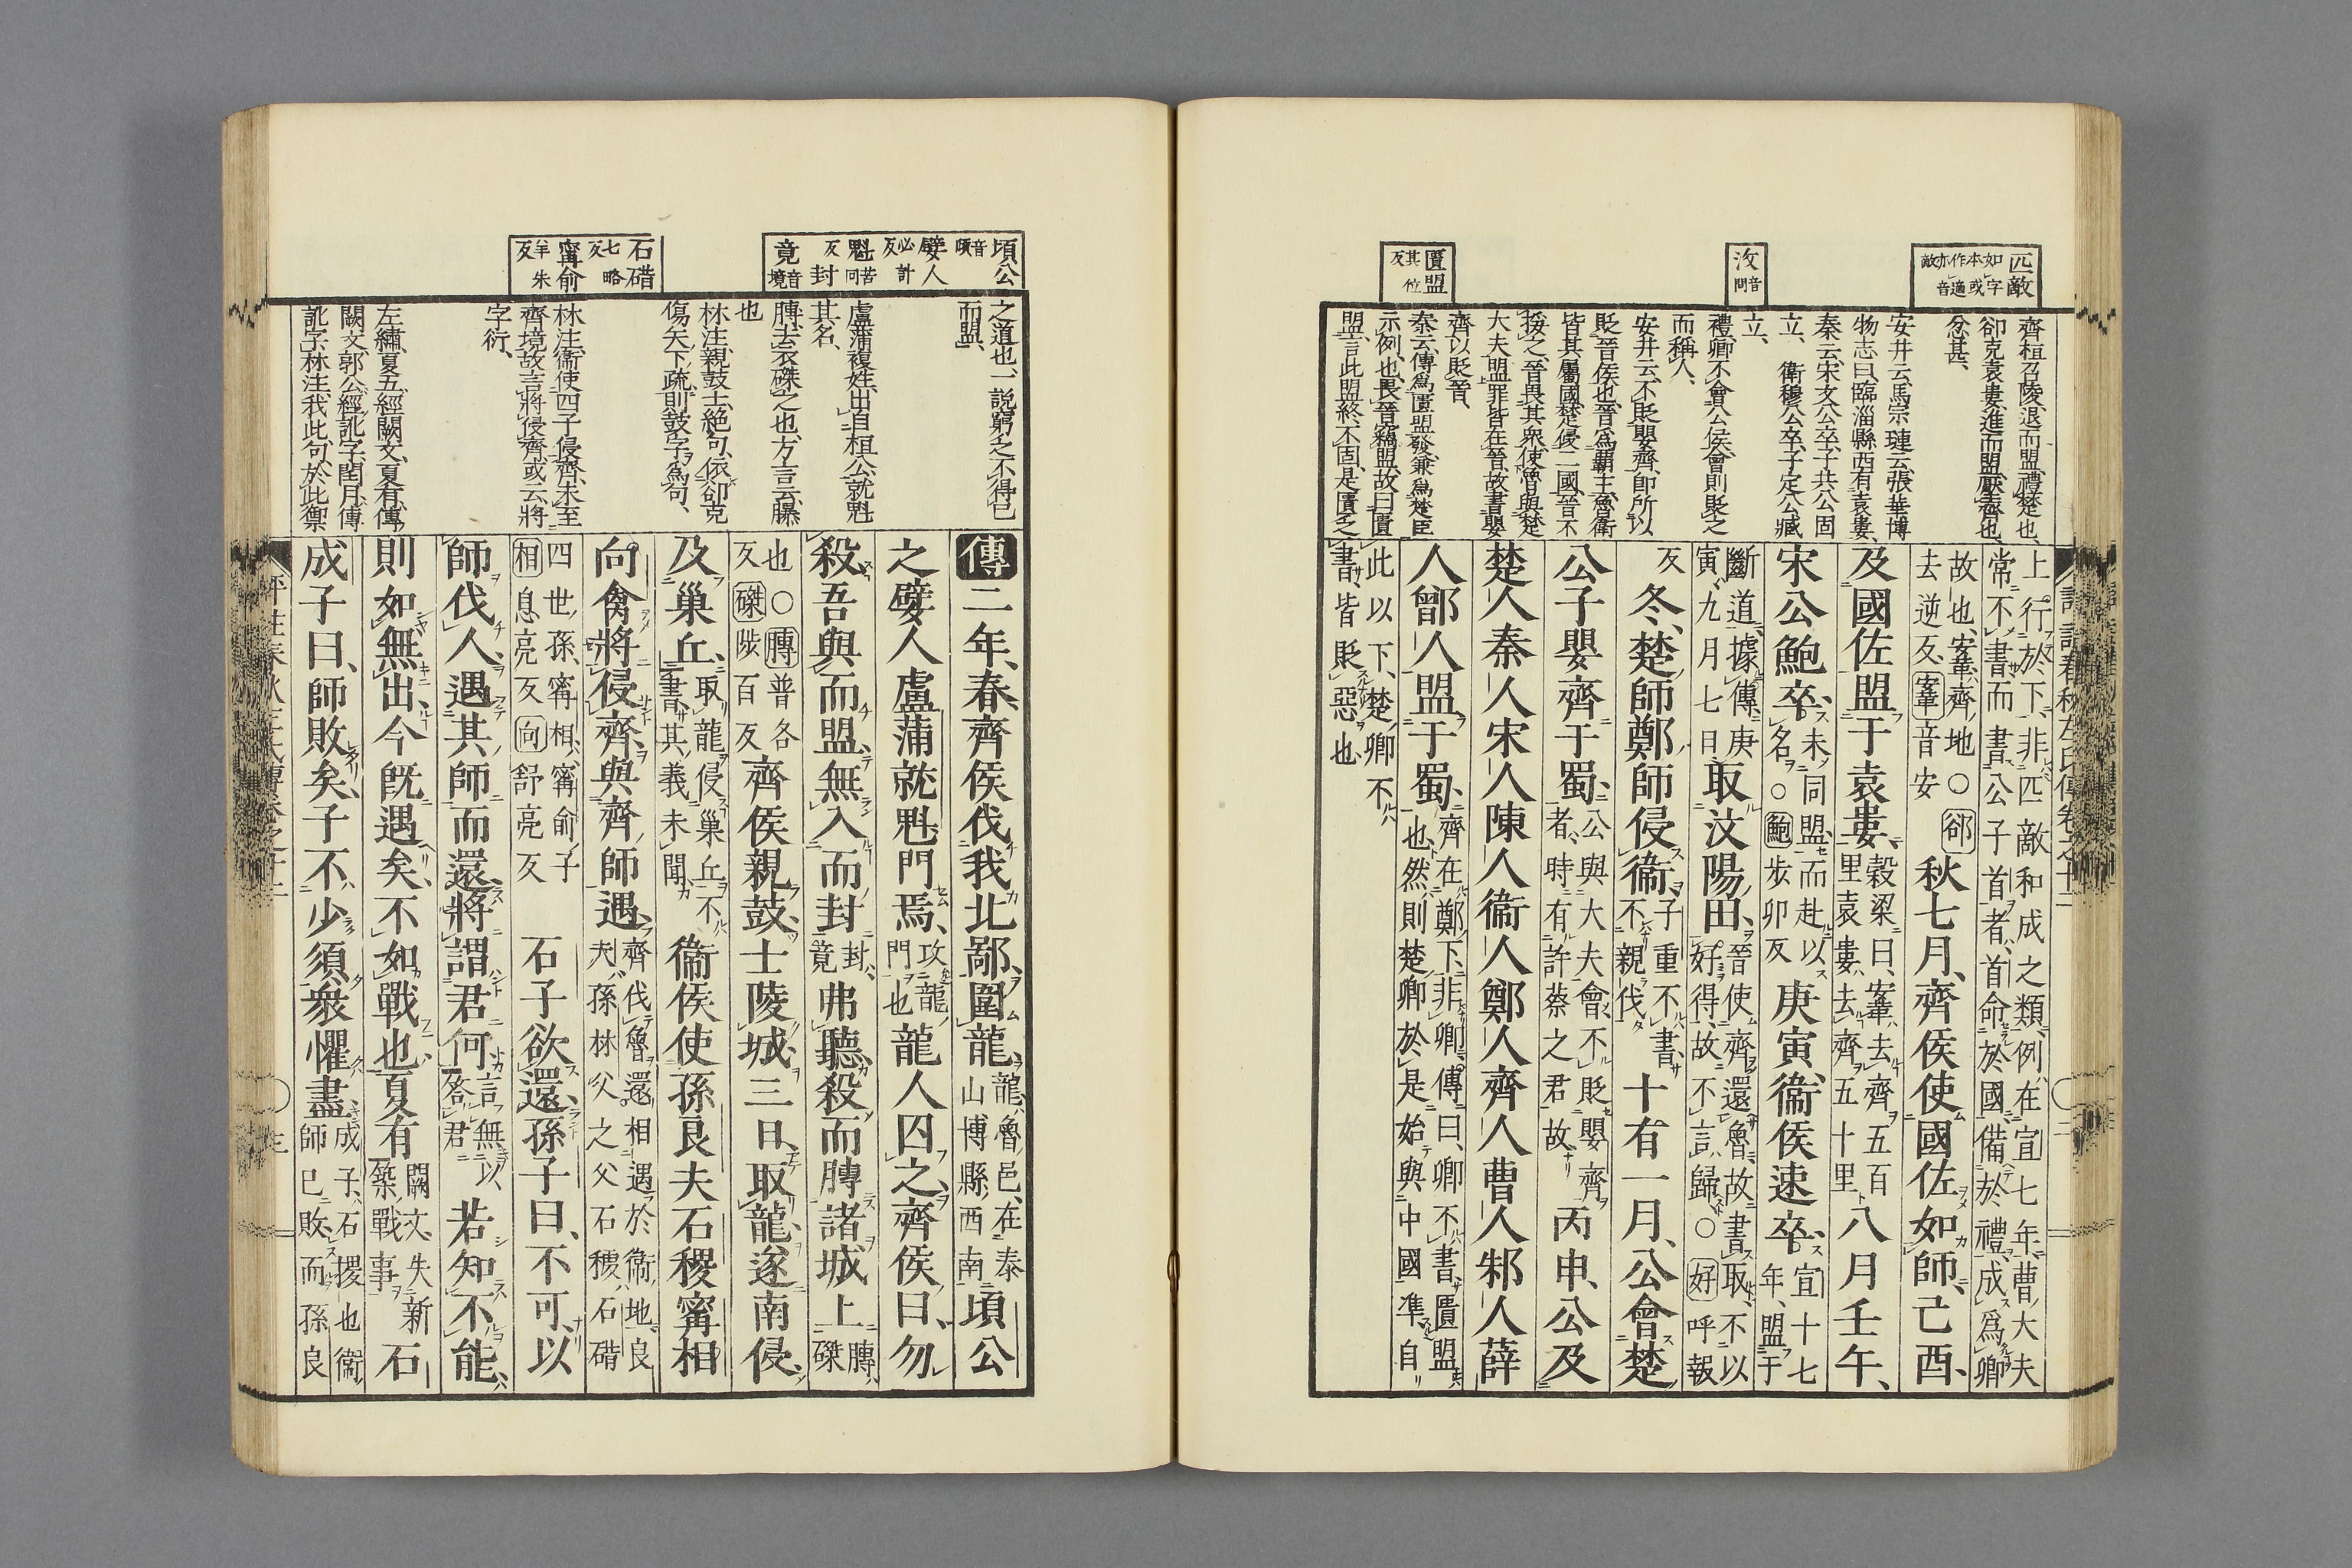 匹敵如字本或作適亦音敵
汶音問
匱盟其位反
齊桓召陵退而盟禮楚也、
卻克袁婁進而盟厭齊也、
忿甚、
安井云馬宗璉云張華博
物志曰臨淄縣西有袁婁、
秦云宋文公卒子共公固
立、衛穆公卒子定公臧
立、
禮卿不會公侯會則貶之
而稱人、
安井云不貶嬰齊即所以
貶晉侯也晉爲覇主魯衛
皆其屬國楚侵二國晉不
援之晉畏其衆使魯與楚
大夫盟罪皆在晉故書嬰
齊以貶晉、
秦云傳爲匱盟發兼爲楚臣
示例也畏晉竊盟故曰匱
盟言此盟終不固是匱乏
上行於下非匹敵和成之類例在宣七年曹大夫
常不書而書公子首者首命於國備於禮成爲卿
故也安鞌齊地○卻
去逆反鞌音安
秋七月、齊侯使國佐如師、己酉、
及國佐盟于袁婁、穀梁曰鞌去齊五百
里袁婁去齊五十里八月壬午、
宋公鮑卒、未同盟而赴以
名○鮑步卯反庚寅、衛侯速卒、宣十七
年盟于
斷道據傳庚
寅九月七日取汶陽田、晉使齊還魯故書取不以
好得故不言歸○好呼報
反冬、楚師鄭師侵衛、子重不書
不親伐十有一月、公會楚
公子嬰齊于蜀、公與大夫會不貶嬰齊
者時有許蔡之君故丙申、公及
楚人秦人宋人陳人衛人鄭人齊人曹人邾人薛
人鄫人盟于蜀、齊在鄭下非卿傳曰卿不書匱盟
也然則楚卿於是始與中國準自
此以下楚卿不
書皆貶惡也
頃公音頃
嬖人必計反
魁苦回反
封竟音境
石碏七略反
甯俞羊朱反
之道也一說窮之不得已
而盟、
盧蒲複姓出自桓公就魁
其名、
膊去衣磔之也方言云㬥
也
林注親鼓士絕句依卻克
傷矢下疏則鼓字爲句、
林注衛使四子侵齊未至
齊境故言將侵齊或云將
字衍、
左繡夏五經闕文夏有傳
闕文郭公經訛字閏月傳
訛字林注我此句於此禦
傳二年、春、齊侯伐我北鄙、圍龍、龍魯邑在泰
山博縣西南頃公
之嬖人盧蒲就魁門焉、攻龍
門也龍人囚之、齊侯曰、勿
殺、吾與而盟、無入而封、封
竟弗聽、殺而膊諸城上、膊磔
也○膊普各
反磔陟百反齊侯親鼓、士陵城、三日、取龍、遂南侵、
及巢丘、取龍侵巢丘不
書其義未聞衛侯使孫良夫石稷甯相
向禽將侵齊、與齊師遇、齊伐魯還相遇於衛地良
夫孫林父之父石稷石碏
四世孫甯相甯俞子
相息亮反向舒亮反石子欲還、孫子曰、不可、以
師伐人、遇其師而還、將謂君何、言無以
答君若知不能、
則如無出、今既遇矣、不如戰也、夏有闕文失新
築戰事石
成子曰、師敗矣、子不少須、衆懼盡、成子石稷也衛
師已敗而孫良